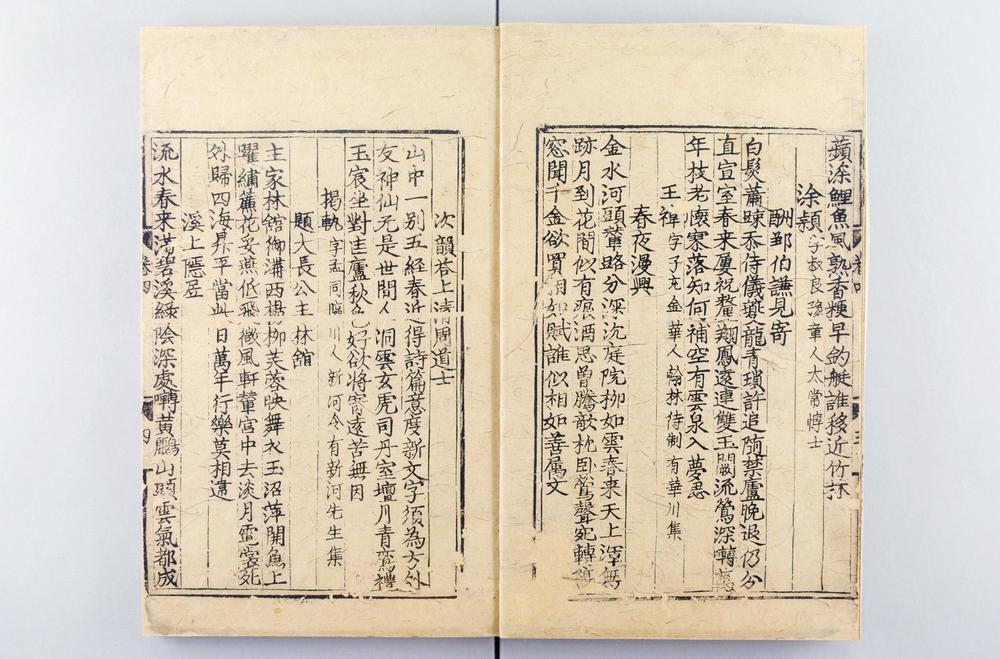 蘋深鯉魚風孰香粳早釣艇誰移近竹林
涂穎字叔良豫章人太常博士
酬鄒伯謙見寄
白髮蕭踈忝侍儀龍青瑣許追随禁廬晚退仍分
直宣室春来屢祝釐翔鳳遠連雙玉闕流鶯深囀萬
年枝老懷寥落知何補空有雲泉入夢思
王褘字子充金華人翰林待制有華川集
春夜漫興
金水河頭輦路分深沉庭院柳如雲春来天上渾無
跡月到花間似有痕酒思曽騰敧枕卧鶯聲宛轉
窓聞千金欲買相如賦誰似相如善属文
次韻荅上清周道士
山中一别五經春近得詩篇意度新文字須為方外
友神仙元是世間人洞雲玄虎司丹室壇月青鸞禮
玉宸坐對匡廬秋色好欲將寄遠苦無因
揭軌字孟同臨川人新河令有新河先生集
題大長公主林舘
主家林舘御溝西楊柳芙蓉映舞衣玉沼萍開魚上
躍繡簾花妥燕低飛微風軒輦宮中去淡月霓裳死
外歸四海昇平當此日萬年行樂莫相違
溪上隱居
流水春来滿碧溪綠陰深處囀黄鸝山頭雲氣都成